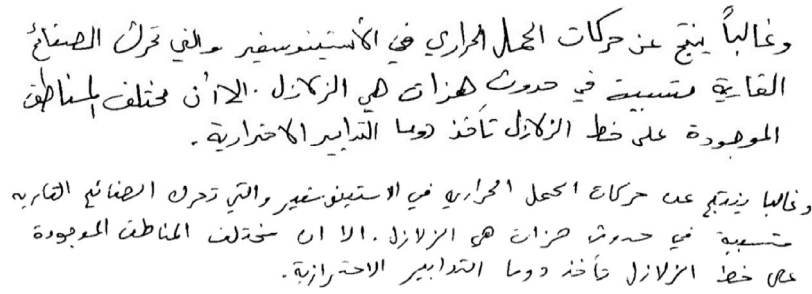 وغالباً ينتج عن حركات الحمل الحراري في الأستينوسفير والتي تحرك الصفائح
القارية متسببة في حدوث هزات هي الزلازل. الا أن مختلف المناطق
الموجودة على خط الزلازل تأخذ دوما التدابير الاحترازية.
وغالبا ينتج عن حركات الحمل الحراري في الاستينوسفير والتي تحرك الصفائح القاريه
متسببة في حدوث هزات هي الزلازل. الا ان مختلف المناطق الموجودة
على خط الزلازل تأخذ دوما التدابير الاحترازية.